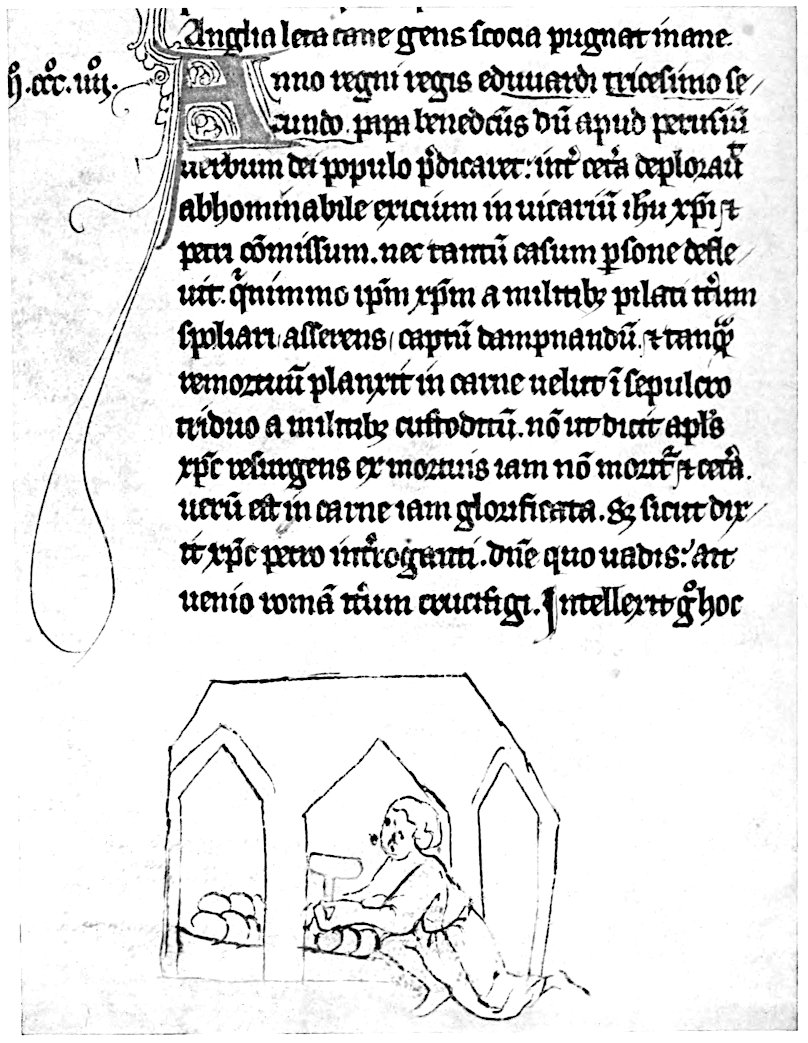 Anglia leta cane gens scocia pugnat inane.
M̊.ccc̊.iiii̊.
Anno regni regis eduuardi tricesimo se/
cundo. papa benedc̄us dū apud perusiū
uerbum dei populo p̄dicaret: int͛ cet͛a deplorauͭ
abhominabile exicium in uicariū ihu xp̄i ⁊
petri cōmissum. nec tantū casum ꝑsone defle/
uit. qͥnimmo ip̄m xp̄m a militibꝫ pilati it͛um
spoliari asserens captū dampnandū. ⁊ tanqͣꝫ
remortuū planxit in carne uelut ī sepulcro
triduo a militibꝫ custoditū. nō ut dicit apl̄s
xp̄c resurgens ex mortuis iam nō moritͬ ⁊ cet͛a.
uerū est in carne iam glorificata. Sꝫ sicut dix/
it xp̄c petro int͛roganti. dn̄e quo uadis: ait
uenio romā it͛um crucifigi. Intellexit gͦ hoc